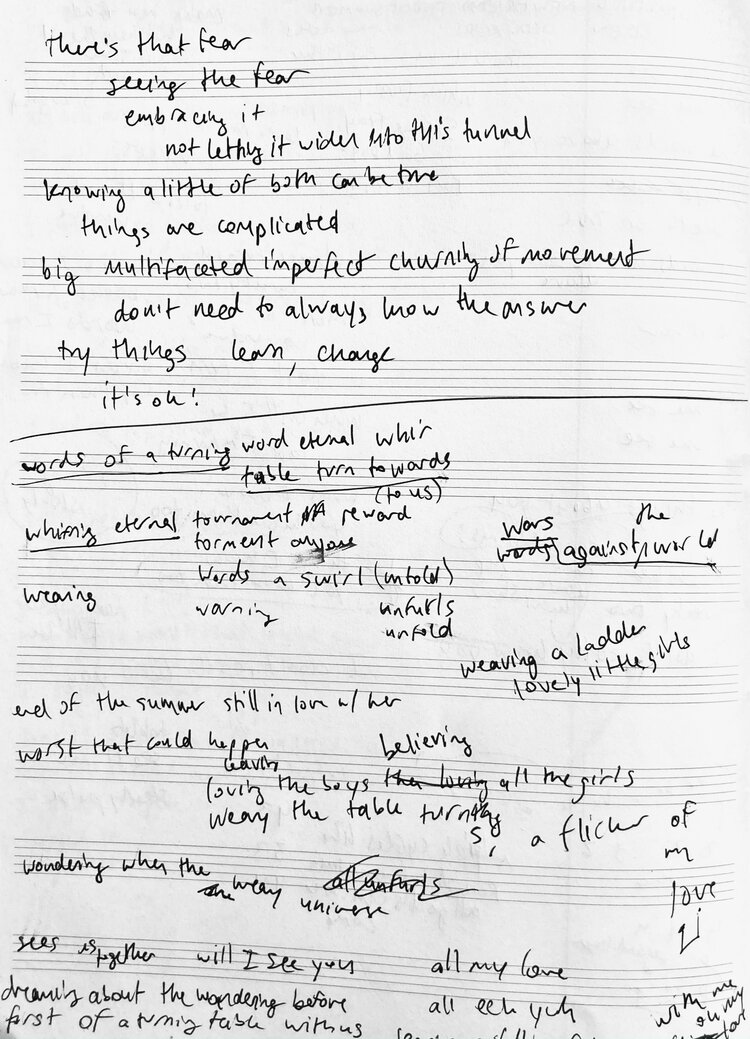 there's that fear
seeing the fear
embracing it
not letting it widen into this tunnel
knowing a little of both can be true
things are complicated
big multifaceted imperfect churning of movement
don't need to always know the answer
try things learn, change
it's ok!
words of a turning word eternal whir
table turn towards
(to us)
whirring eternal tournament reward
torment
wars the
words against world
words a swirl (untold)
weaving
warning unfurls
unfold
weaving a ladder
lovely little girls
end of the summer still in love w/ her
worst that could happen believing
leaving
loving the boys then loving all the girls
weary the table turning
s, a flicker of
my
love
wondering when the all unfurls
weary universe
sees us together will I see you all my love
dreaming about the wondering before all eeh yuh
first of a turning table with us
with me
on my